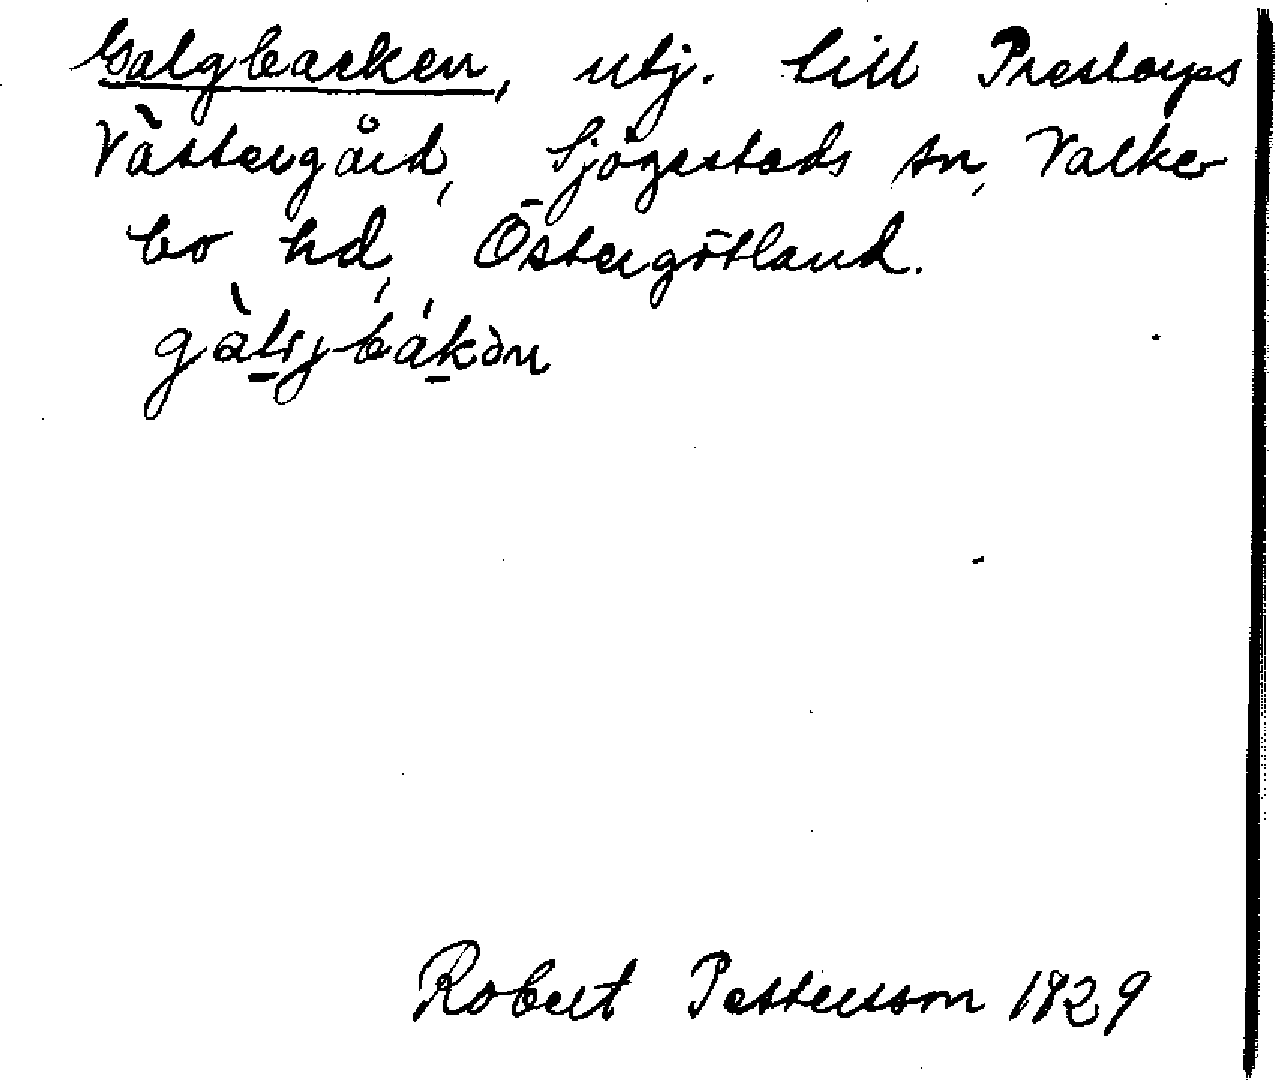 Galgbacken, utj. till Prestorps
Västergård, Sjögestads sn, Valke-
bo hd, Östergötland.
Robert Pettersson 1929